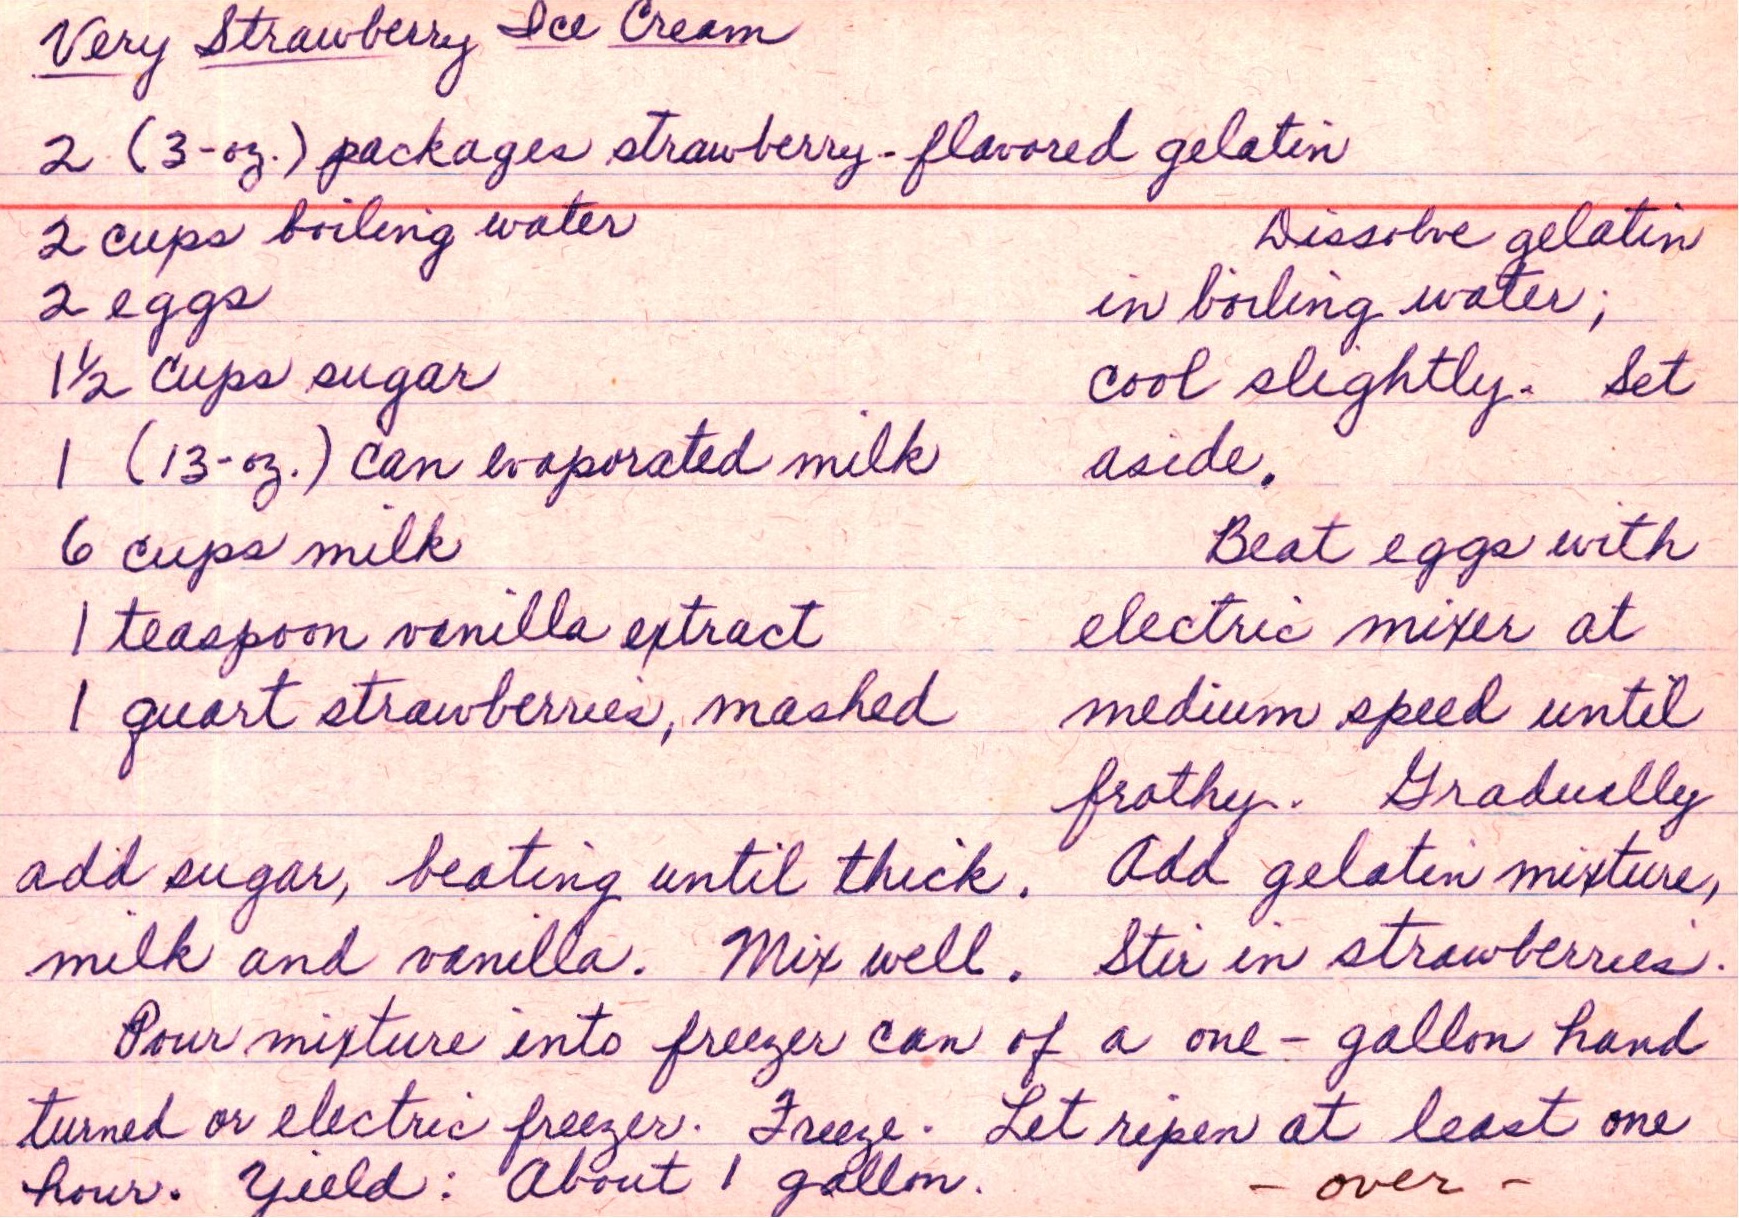 Very Strawberry Ice Cream
2 (3-oz.) packages strawberry-flavored gelatin
2 cups boiling water
2 eggs
1½ cups sugar
1 (13-oz.) can evaporated milk
6 cups milk
1 teaspoon vanilla extract
1 quart strawberries, mashed
Dissolve gelatin
in boiling water;
cool slightly. Set
aside.
Beat eggs with
electric mixer at
medium speed until
frothy. Gradually
add sugar, beating until thick. Add gelatin mixture,
milk and vanilla. Mix well. Stir in strawberries.
Pour mixture into freezer can of a one-gallon hand
turned or electric freezer. Freeze. Let ripen at least one
hour. Yield: About 1 gallon. - over -